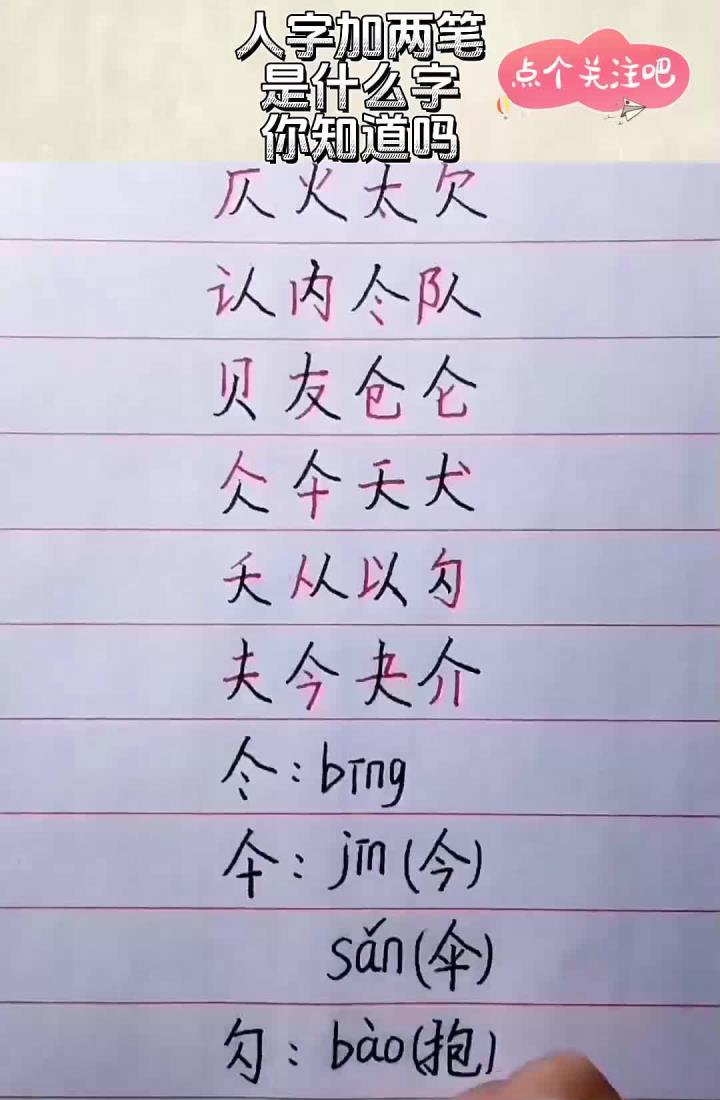 人字加两笔
是什么字
你知道吗
点个关注吧
仄火太欠
认内仒队
贝友仓仑
仌仐天犬
夭从以勽
夫今夬介
仒：bīng
仐：jīn(今)
sǎn(伞)
勽：bào(抱)